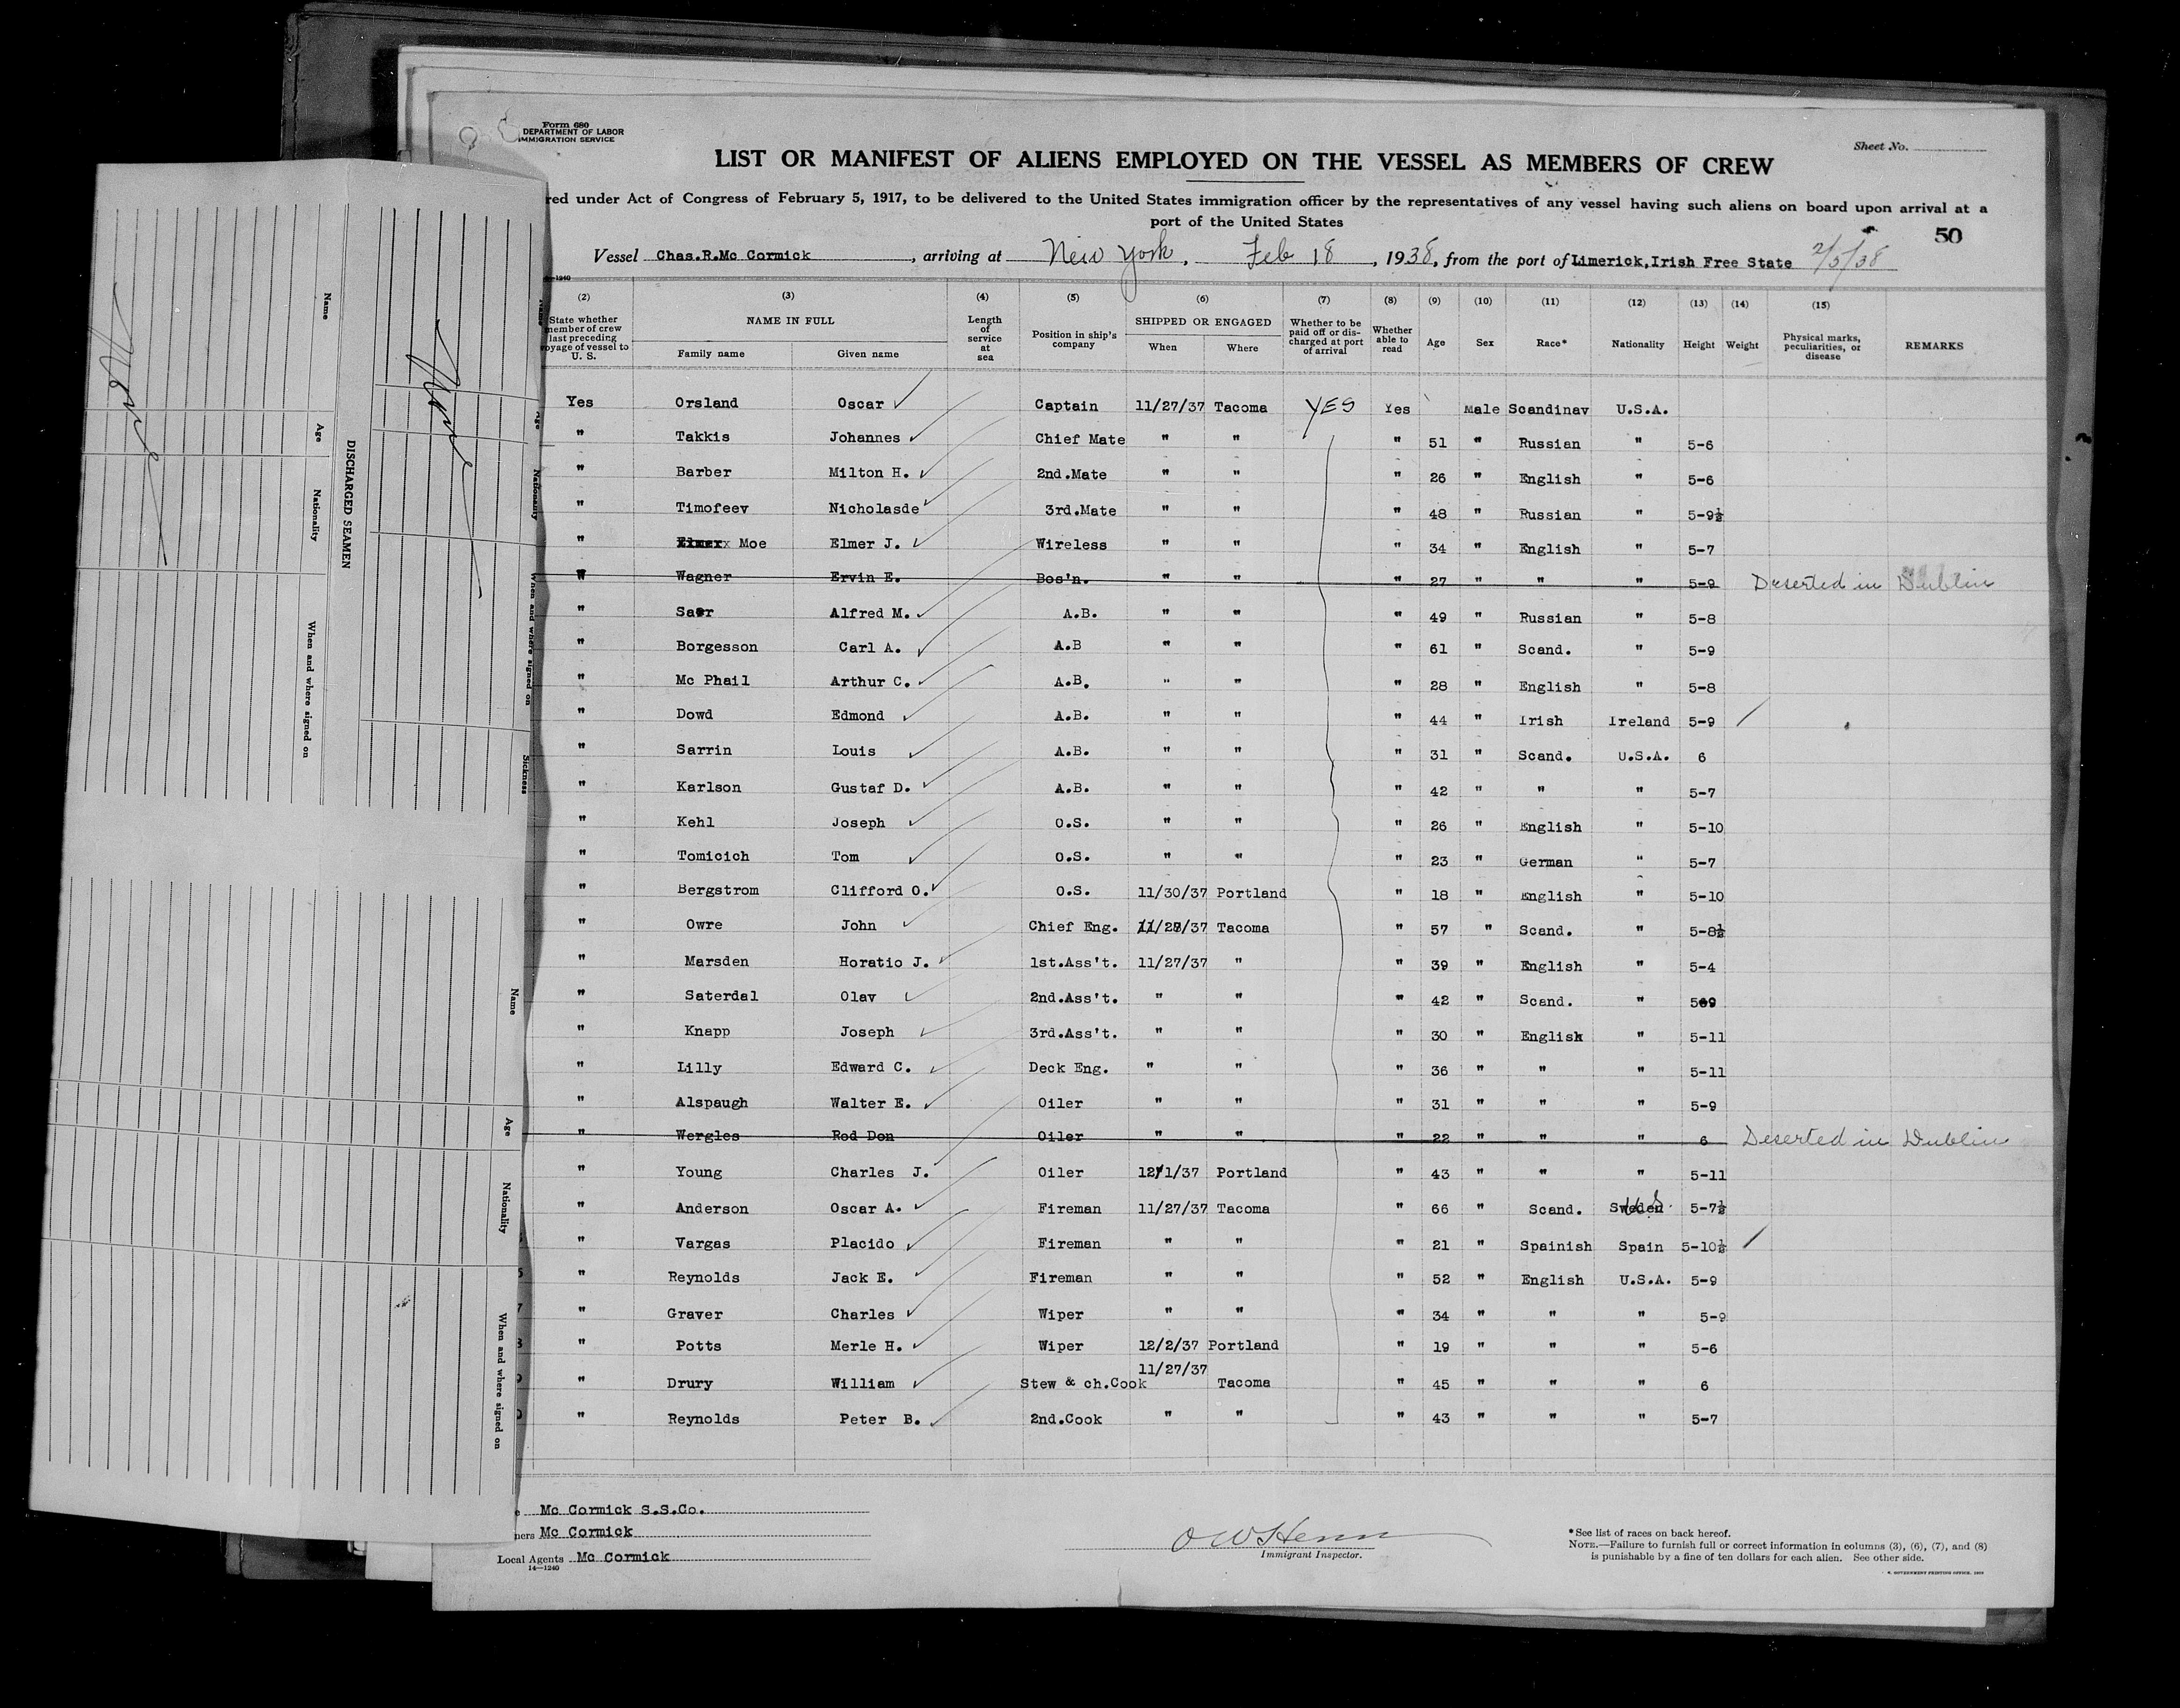 Form 680
DEPARTMENT OF LABOR
IMMIGRATION SERVICE
Sheet No.
LIST OR MANIFEST OF ALIENS EMPLOYED ON THE VESSEL AS MEMBERS OF CREW
red under Act of Congress of February 5, 1917, to be delivered to the United States immigration officer by the representatives of any vessel having such aliens on board upon arrival at a
port of the United States
50
Vessel Chas.R.Mc Cormick, arriving at New York, Feb 18, 1938, from the port of Limerick,Irish Free State 2/5/38
(2) (3) (4) (5) (6) (7) (8) (9) (10) (11) (12) (13) (14) (15)
State whether member of crew last preceding voyage of vessel to U. S. NAME IN FULL Family name Given name Length of service at sea Position in ship's company SHIPPED OR ENGAGED When Where Whether to be paid off or discharged at port of arrival Whether able to read Age Sex Race* Nationality Height Weight Physical marks, peculiarities, or disease REMARKS
Yes Orsland Oscar Captain 11/27/37 Tacoma YES Yes Male Scandinav U.S.A.
" Takkis Johannes Chief Mate " " " 51 " Russian " 5-6
" Barber Milton H. 2nd.Mate " " " 26 " English " 5-6
" Timofeev Nicholasde 3rd.Mate " " " 48 " Russian " 5-9½
" Moe Elmer J. Wireless " " " 34 " English " 5-7
" Wagner Ervin E. Bos'n. " " " 27 " " " 5-9 Deserted in Dublin
" Saar Alfred M. A.B. " " " 49 " Russian " 5-8
" Borgesson Carl A. A.B " " " 61 " Scand. " 5-9
" Mc Phail Arthur C. A.B. " " " 28 " English " 5-8
" Dowd Edmond A.B. " " " 44 " Irish Ireland 5-9
" Sarrin Louis A.B. " " " 31 " Scand. U.S.A. 6
" Karlson Gustaf D. A.B. " " " 42 " " " 5-7
" Kehl Joseph O.S. " " " 26 " English " 5-10
" Tomicich Tom O.S. " " " 23 " German " 5-7
" Bergstrom Clifford O. O.S. 11/30/37 Portland " 18 " English " 5-10
" Owre John Chief Eng. 11/28/37 Tacoma " 57 " Scand. " 5-8½
" Marsden Horatio J. 1st.Ass't. 11/27/37 " " 39 " English " 5-4
" Saterdal Olav 2nd.Ass't. " " " 42 " Scand. " 5-9
" Knapp Joseph 3rd.Ass't. " " " 30 " English " 5-11
" Lilly Edward C. Deck Eng. " " " 36 " " " 5-11
" Alspaugh Walter E. Oiler " " " 31 " " " 5-9
" Wergles Rod Don Oiler " " " 22 " " " 6 Deserted in Dublin
" Young Charles J. Oiler 12/1/37 Portland " 43 " " " 5-11
" Anderson Oscar A. Fireman 11/27/37 Tacoma " 66 " Scand. Sweden US 5-7½
" Vargas Placido Fireman " " " 21 " Spainish Spain 5-10½
" Reynolds Jack E. Fireman " " " 52 " English U.S.A. 5-9
" Graver Charles Wiper " " " 34 " " " 5-9
" Potts Merle H. Wiper 12/2/37 Portland " 19 " " " 5-6
" Drury William Stew & ch.Cook 11/27/37 Tacoma " 45 " " " 6
" Reynolds Peter B. 2nd.Cook " " " 43 " " " 5-7
Mc Cormick S.S.Co.
ners Mc Cormick
Local Agents Mc Cormick
14—1240
O W Henn
Immigrant Inspector.
*See list of races on back hereof.
NOTE.—Failure to furnish full or correct information in columns (3), (6), (7), and (8)
is punishable by a fine of ten dollars for each alien. See other side.
GOVERNMENT PRINTING OFFICE
Name Age Nationality When and where signed on
None
DISCHARGED SEAMEN
Name Age Nationality When and where signed on Sickness
None
Name Age Nationality When and where signed on